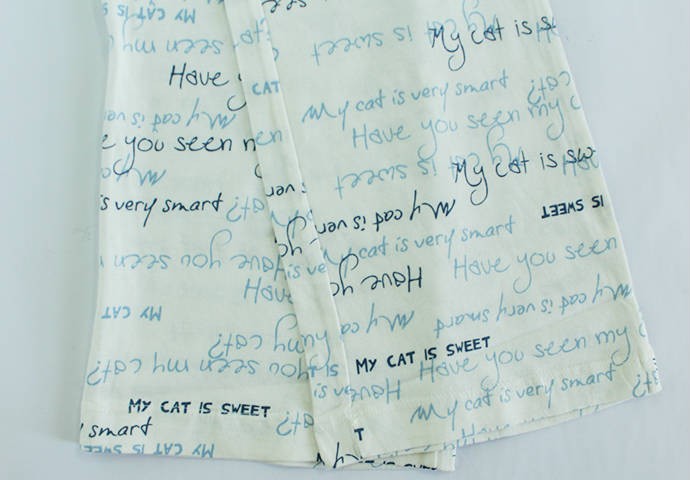 MY CAT IS SWEET
is sweet
My cat is sw
Have y
CAT
My cat is very smart
cat?
Have you seen my c
My cat is ve
e you seen m
is sweet
My cat is sw
s very smart
cat?
My cat is very
IS SWEET
y cat is very smart
you seen
Have
Have you seen
Have yo
MY CAT
My cat is very smart
my cat?
you seen my cat?
MY CAT IS SWEET
Have you seen my
MY CAT IS SWEET
My cat is very smart
smart
MY CAT IS SWEE
T